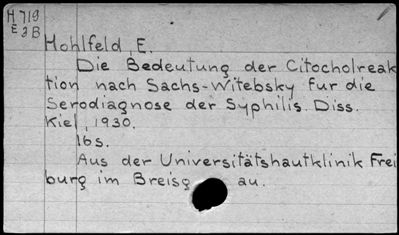 H 719
E 3B
Hohlfeld, E.
Die Bedeutung der Citocholreak
tion nach Sachs-Witebsky fur die
Serodiagnose der Syphilis. Diss.
Kiel, 1930.
16s.
Aus der Universitätshautklinik Frei
burg im Breisg au.